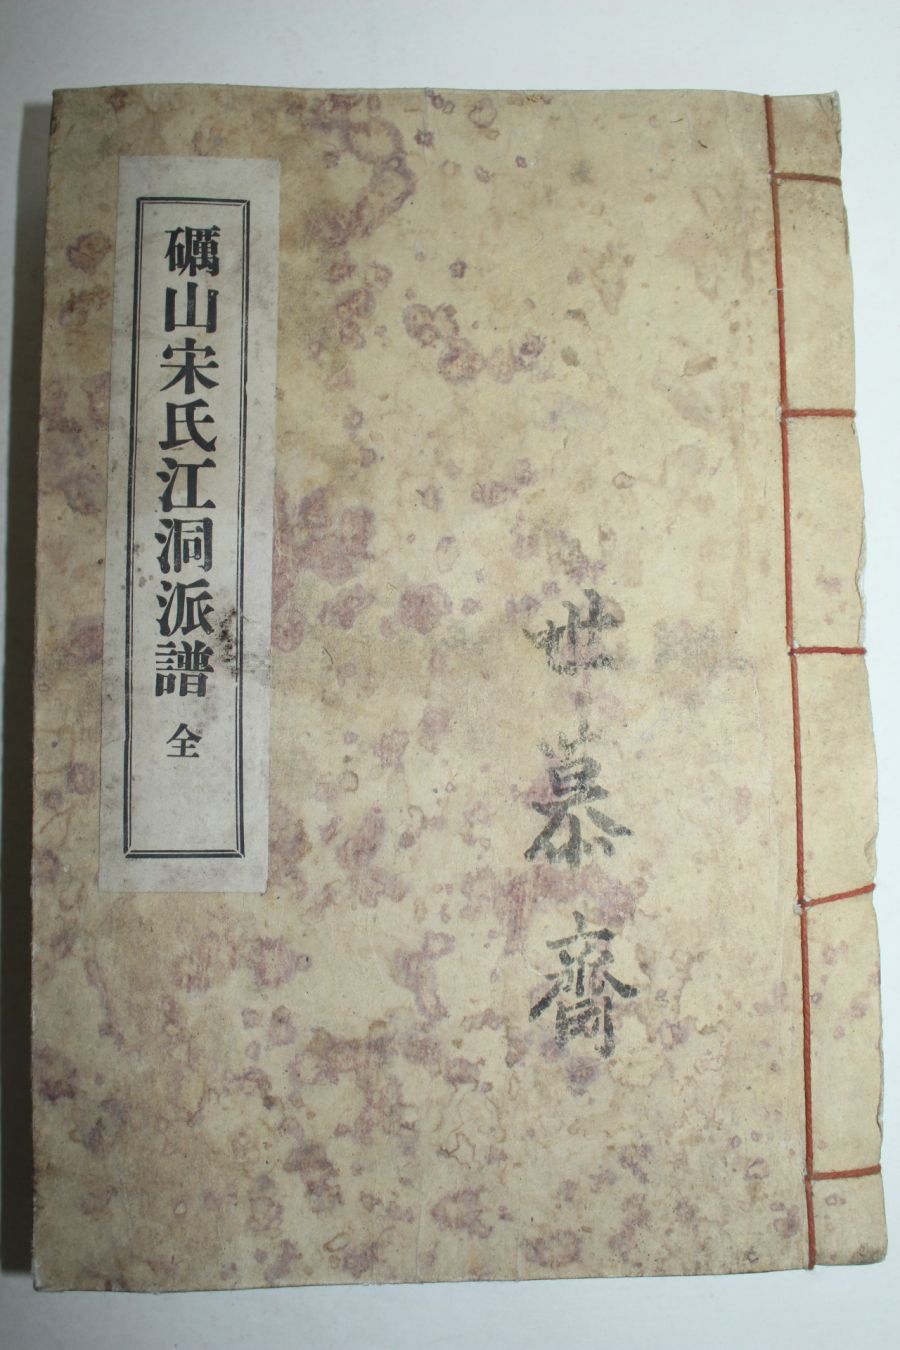 世慕齋
礪山宋氏江洞派譜 全